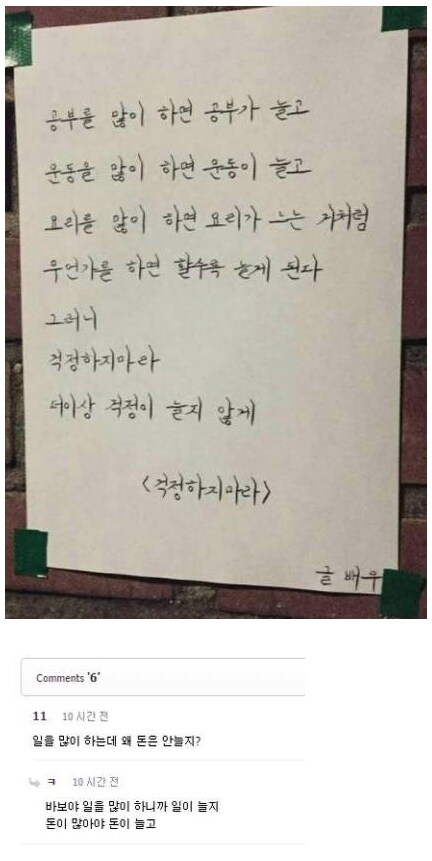 공부를 많이 하면 공부가 늘고
운동을 많이 하면 운동이 늘고
요리를 많이 하면 요리가 느는 거처럼
무언가를 하면 할수록 늘게 된다
그러니
걱정하지마라
더이상 걱정이 늘지 않게
<걱정하지마라>
글 배우
Comments '6'
11 10 시간 전
일을 많이 하는데 왜 돈은 안늘지?
ㅋ 10 시간 전
바보야 일을 많이 하니까 일이 늘지
돈이 많아야 돈이 늘고